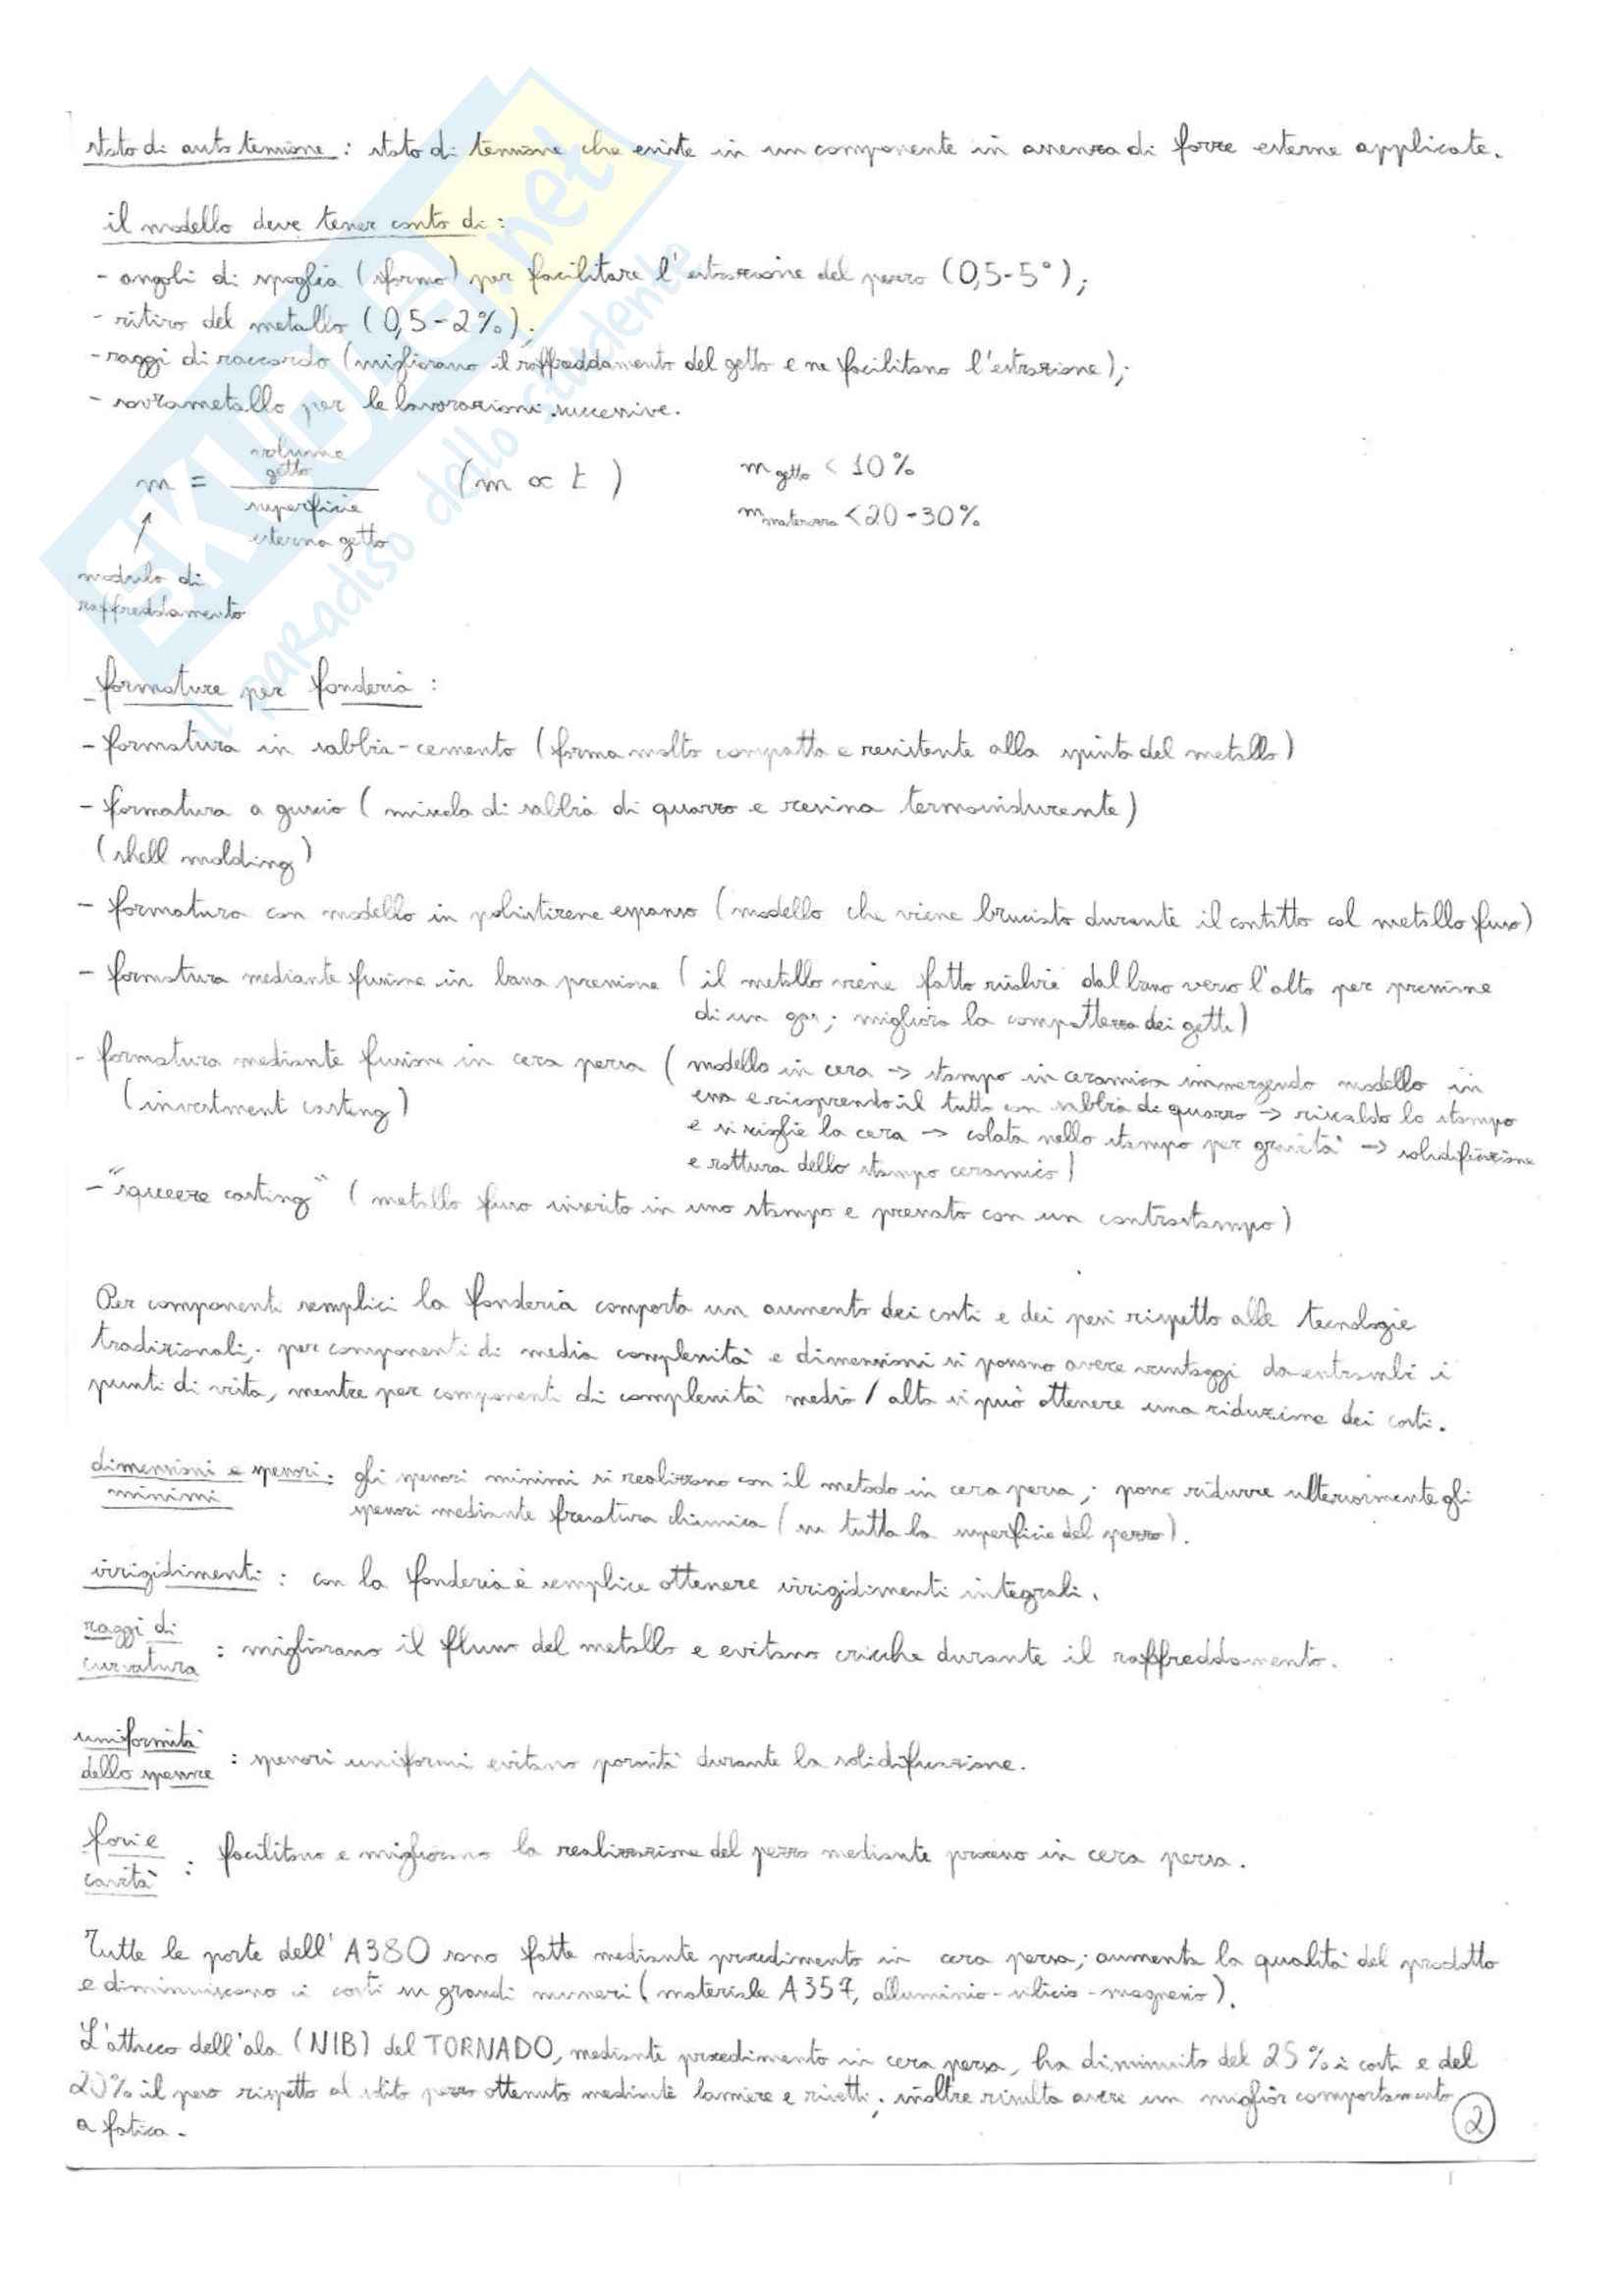 stato di auto tensione : stato di tensione che esiste in un componente in assenza di forze esterne applicate.
il modello deve tener conto di :
- angoli di spoglia (sformo) per facilitare l'estrazione del pezzo (0,5-5°);
- ritiro del metallo (0,5-2%);
- raggi di raccordo (migliorano il raffreddamento del getto e ne facilitano l'estrazione);
- sovrametallo per le lavorazioni successive.
m = volume getto / superficie esterna getto (m ∝ t) m getto < 10%
m materozza < 20-30%
modulo di
raffreddamento
- formature per fonderia :
- formatura in sabbia-cemento (forma molto compatta e resistente alla spinta del metallo)
- formatura a guscio (miscela di sabbia di quarzo e resina termoindurente)
(shell molding)
- formatura con modello in polistirene espanso (modello che viene bruciato durante il contatto col metallo fuso)
- formatura mediante fusione in bassa pressione (il metallo viene fatto risalire dal basso verso l'alto per pressione
di un gas; migliora la compattezza dei getti)
- formatura mediante fusione in cera persa (modello in cera → stampo in ceramica immergendo modello in
(investment casting) essa e ricoprendo il tutto con sabbia di quarzo → riscaldo lo stampo
e si scioglie la cera → colata nello stampo per gravità → solidificazione
e rottura dello stampo ceramico)
- "squeeze casting" (metallo fuso inserito in uno stampo e pressato con un controstampo)
Per componenti semplici la fonderia comporta un aumento dei costi e dei pesi rispetto alle tecnologie
tradizionali; per componenti di media complessità e dimensioni si possono avere vantaggi da entrambi i
punti di vista, mentre per componenti di complessità media / alta si può ottenere una riduzione dei costi.
dimensioni e spessori minimi : gli spessori minimi si realizzano con il metodo in cera persa; posso ridurre ulteriormente gli
spessori mediante fresatura chimica (su tutta la superficie del pezzo).
irrigidimenti : con la fonderia è semplice ottenere irrigidimenti integrali.
raggi di
curvatura : migliorano il flusso del metallo e evitano cricche durante il raffreddamento.
uniformità
dello spessore : spessori uniformi evitano porosità durante la solidificazione.
fori e
cavità : facilitano e migliorano la realizzazione del pezzo mediante processo in cera persa.
Tutte le porte dell'A380 sono fatte mediante procedimento in cera persa; aumenta la qualità del prodotto
e diminuiscono i costi su grandi numeri (materiale A357, alluminio-silicio-magnesio).
L'attacco dell'ala (NIB) del TORNADO, mediante procedimento in cera persa, ha diminuito del 25% i costi e del
20% il peso rispetto al solito pezzo ottenuto mediante lamiere e rivetti; inoltre risulta avere un miglior comportamento
a fatica.
2
SKUOLA.net
il paradiso dello studente